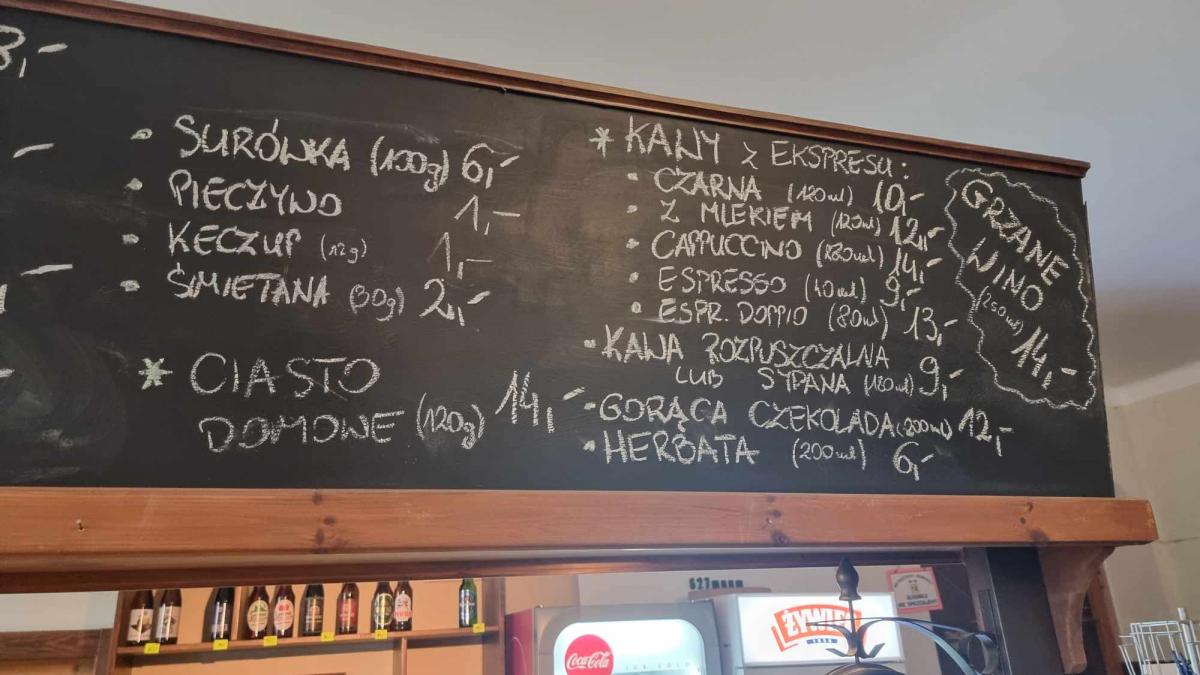 8,-
• SURÓWKA (100g) 6,-
• PIECZYWO 1,-
• KECZUP (12g) 1,-
• ŚMIETANA (30g) 2,-
* CIASTO
DOMOWE (120g) 14,-
* KAWY z EKSPRESU:
• CZARNA (120ml) 10,-
• Z MLEKIEM (120ml) 12,-
• CAPPUCCINO (180ml) 14,-
• ESPRESSO (40ml) 9,-
• ESPR. DOPPIO (80ml) 13,-
• KAWA ROZPUSZCZALNA
LUB SYPANA (180ml) 9,-
• GORĄCA CZEKOLADA (200ml) 12,-
• HERBATA (200ml) 6,-
GRZANE
WINO
(250ml)
14,-
627mnpm
Coca-Cola
ICE COLD
ŻYWIEC